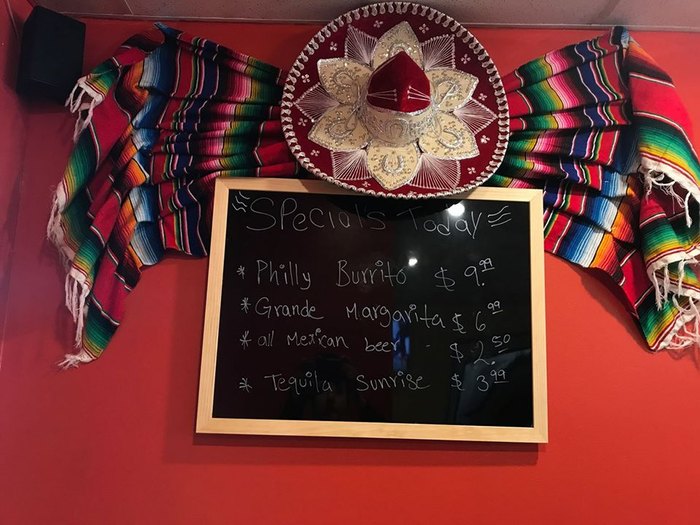 Specials Today
* Philly Burrito $ 9.99
* Grande Margarita $ 6.99
* all Mexican beer - $ 2.50
* Tequila Sunrise $ 3.99